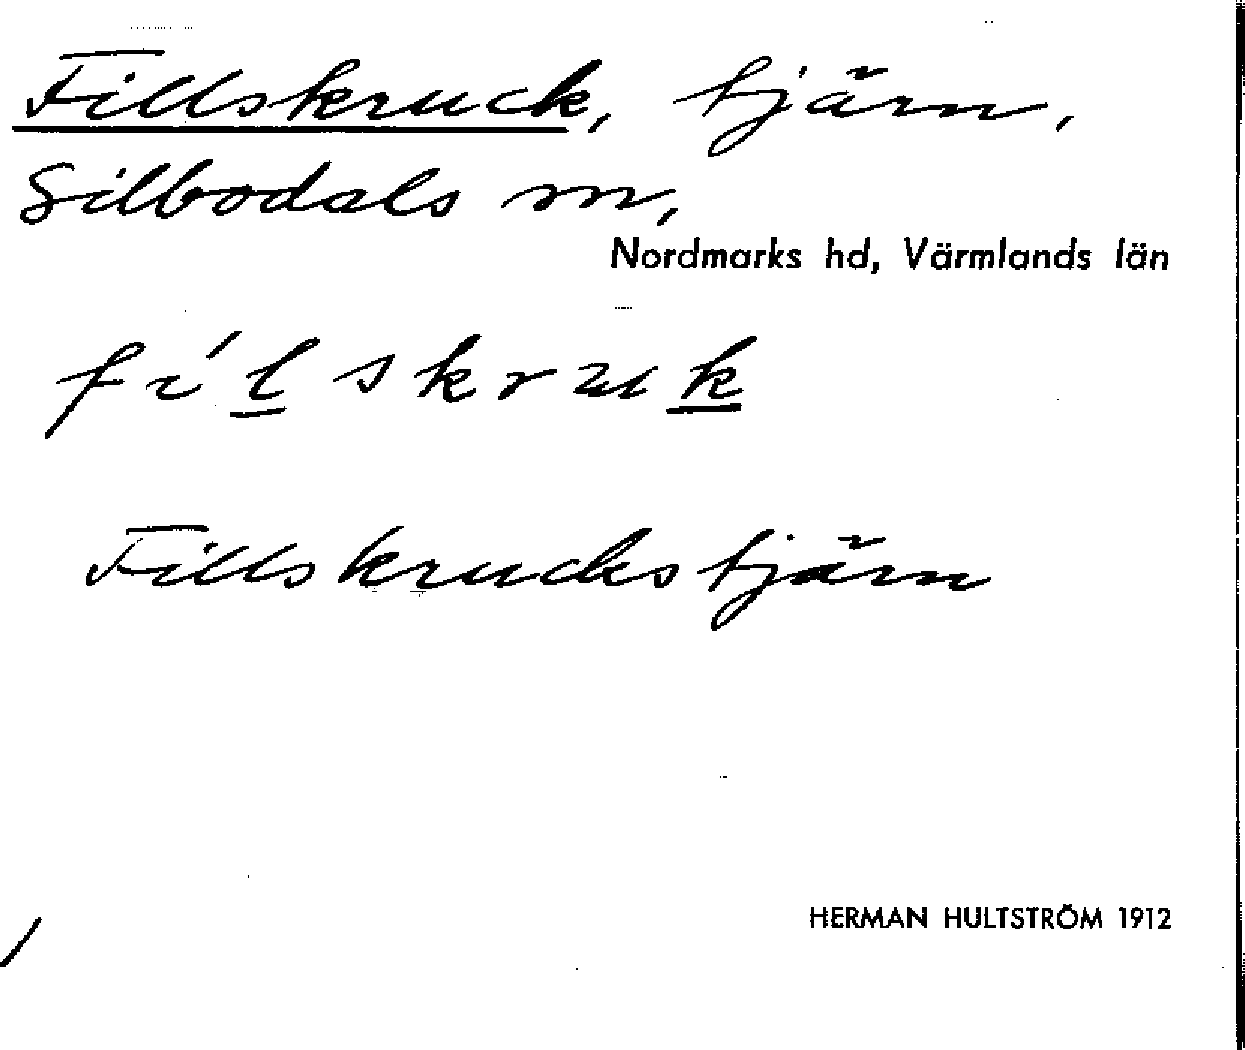 Fillskruck, tjärn,
Silbodals sn,
Nordmarks hd, Värmlands län
fi´lskruk
Fillskruckstjärn
HERMAN HULTSTRÖM 1912